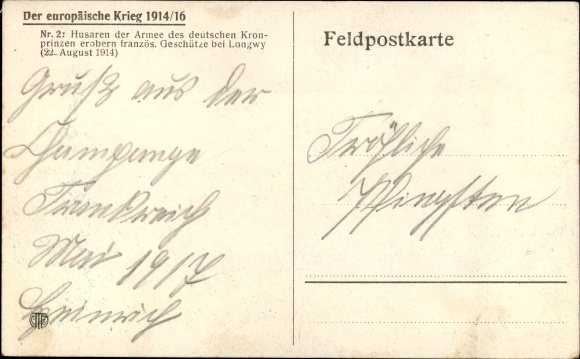 Der europäische Krieg 1914/16
Nr. 2: Husaren der Armee des deutschen Kron-
prinzen erobern französ. Geschütze bei Longwy
(22. August 1914)
Gruß aus der
Champange
Frankreich
Mai 1917
Heinrich
Feldpostkarte
Fröhliche
Pfingsten